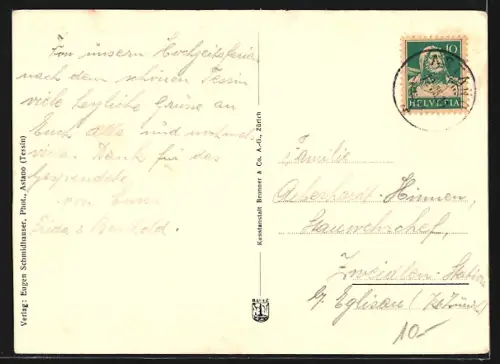 Von unsern Hochzeitsferien
nach dem schönen Tessin
viele herzliche Grüsse an
Euch alle und nochmal
vielen Dank für das
Gespendete
von Euren
Frida & Berthold.
Verlag: Eugen Schmidhauser, Phot., Astano (Tessin)
Kunstanstalt Brunner & Co. A.-G., Zürich
10
HELVETIA
Familie
Aeberhardt-Hinnen,
Stauwehrchef,
Zweidlen-Station
b/ Eglisau (Kt. Zürich)
10.-